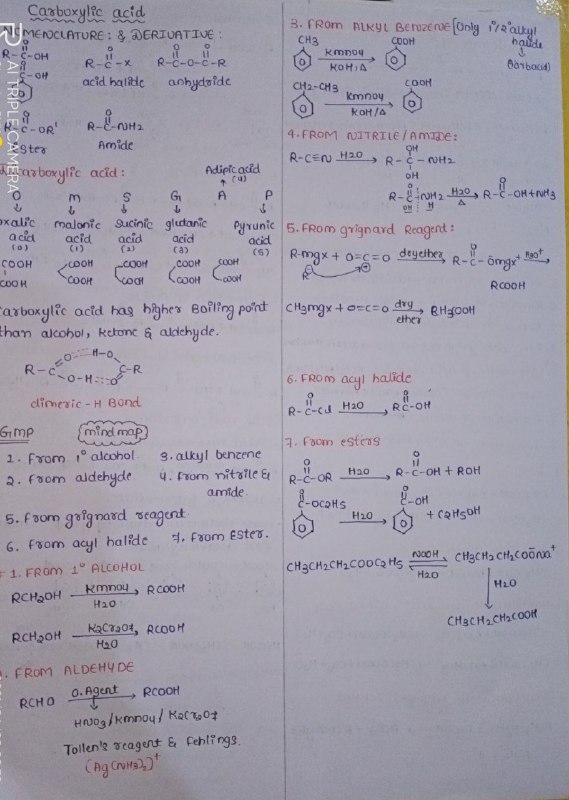 Carboxylic acid
NOMENCLATURE: & DERIVATIVE:
AI TRIPLE CAMERA
R-C-OH
O
C-OH
O
R-C-X
O
acid halide
R-C-O-C-R
O O
anhydride
R-C-OR'
O
Ester
R-C-NH2
O
Amide
Dicarboxylic acid:
Adipic acid
(4)
O M S G A P
oxalic acid (0)
malonic acid (1)
Sucinic acid (2)
glutaric acid (3)
Pyrunic acid (5)
COOH COOH COOH COOH COOH
COOH COOH COOH COOH COOH
Carboxylic acid has higher Boiling point
than alcohol, ketone & aldehyde.
R-C O H-O C-R
O-H O
dimeric - H Bond
GMP mind map
1. From 1° alcohol
2. from aldehyde
3. alkyl benzene
4. from nitrile &
amide
5. from grignard reagent
6. from acyl halide
7. from Ester.
1. FROM 1° ALCOHOL
RCH2OH KMnO4 RCOOH
H2O
RCH2OH K2Cr2O7, RCOOH
H2O
FROM ALDEHYDE
RCHO O.Agent RCOOH
HNO3/KMnO4/K2Cr2O7
Tollen's reagent & fehlings.
(Ag(NH3)2)+
3. FROM ALKYL BENZENE [Only 1°/2° alkyl
halide
CH3 KMnO4 COOH
KOH, Δ
CH2-CH3 KMnO4 COOH
KOH/Δ
4. FROM NITRILE/AMIDE:
R-C≡N H2O R-C-NH2
OH
OH
R-C NH2 H2O R-C-OH+NH3
O Δ O
OH H
5. FROM grignard Reagent:
R-mgx + O=C=O dryether R-C-ōmgx+ H3O+
O
R
RCOOH
CH3mgx + O=C=O dry
ether
6. FROM acyl halide
R-C-Cl H2O RC-OH
O O
7. From esters
R-C-OR H2O R-C-OH + ROH
O O
C-OC2H5 H2O C-OH + C2H5OH
O O
CH3CH2CH2COOC2H5 NaOH CH3CH2CH2COōna+
H2O
H2O
CH3CH2CH2COOH